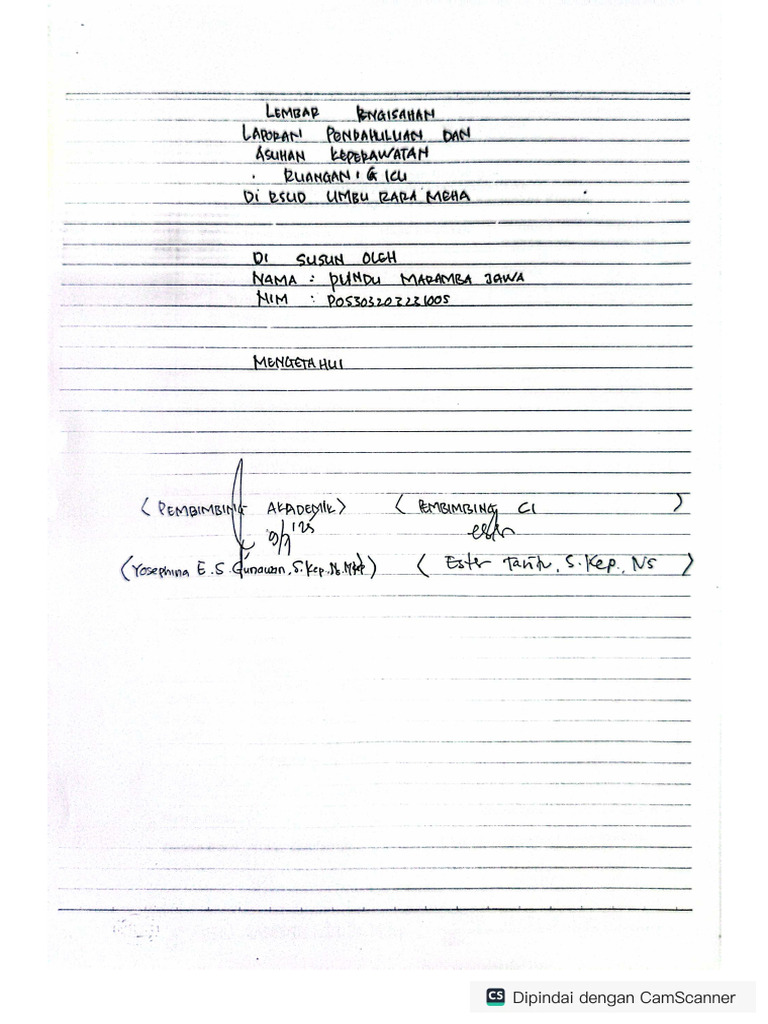 LEMBAR PENGISAHAN
LAPORAN PENDAHULUAN DAN
ASUHAN KEPERAWATAN
RUANGAN : G ICU
Di RSUD UMBU RARA MEHA
DI SUSUN OLEH
NAMA : PUNDU MARAMBA JAWA
NIM : PO5303203231005
MENGETAHUI
(PEMBIMBING AKADEMIK) (PEMBIMBING CI )
(Yosephina E.S. Gunawan, S.Kep.,Ns.,MKep) ( Ester Tanitu, S.Kep., Ns )
CS Dipindai dengan CamScanner